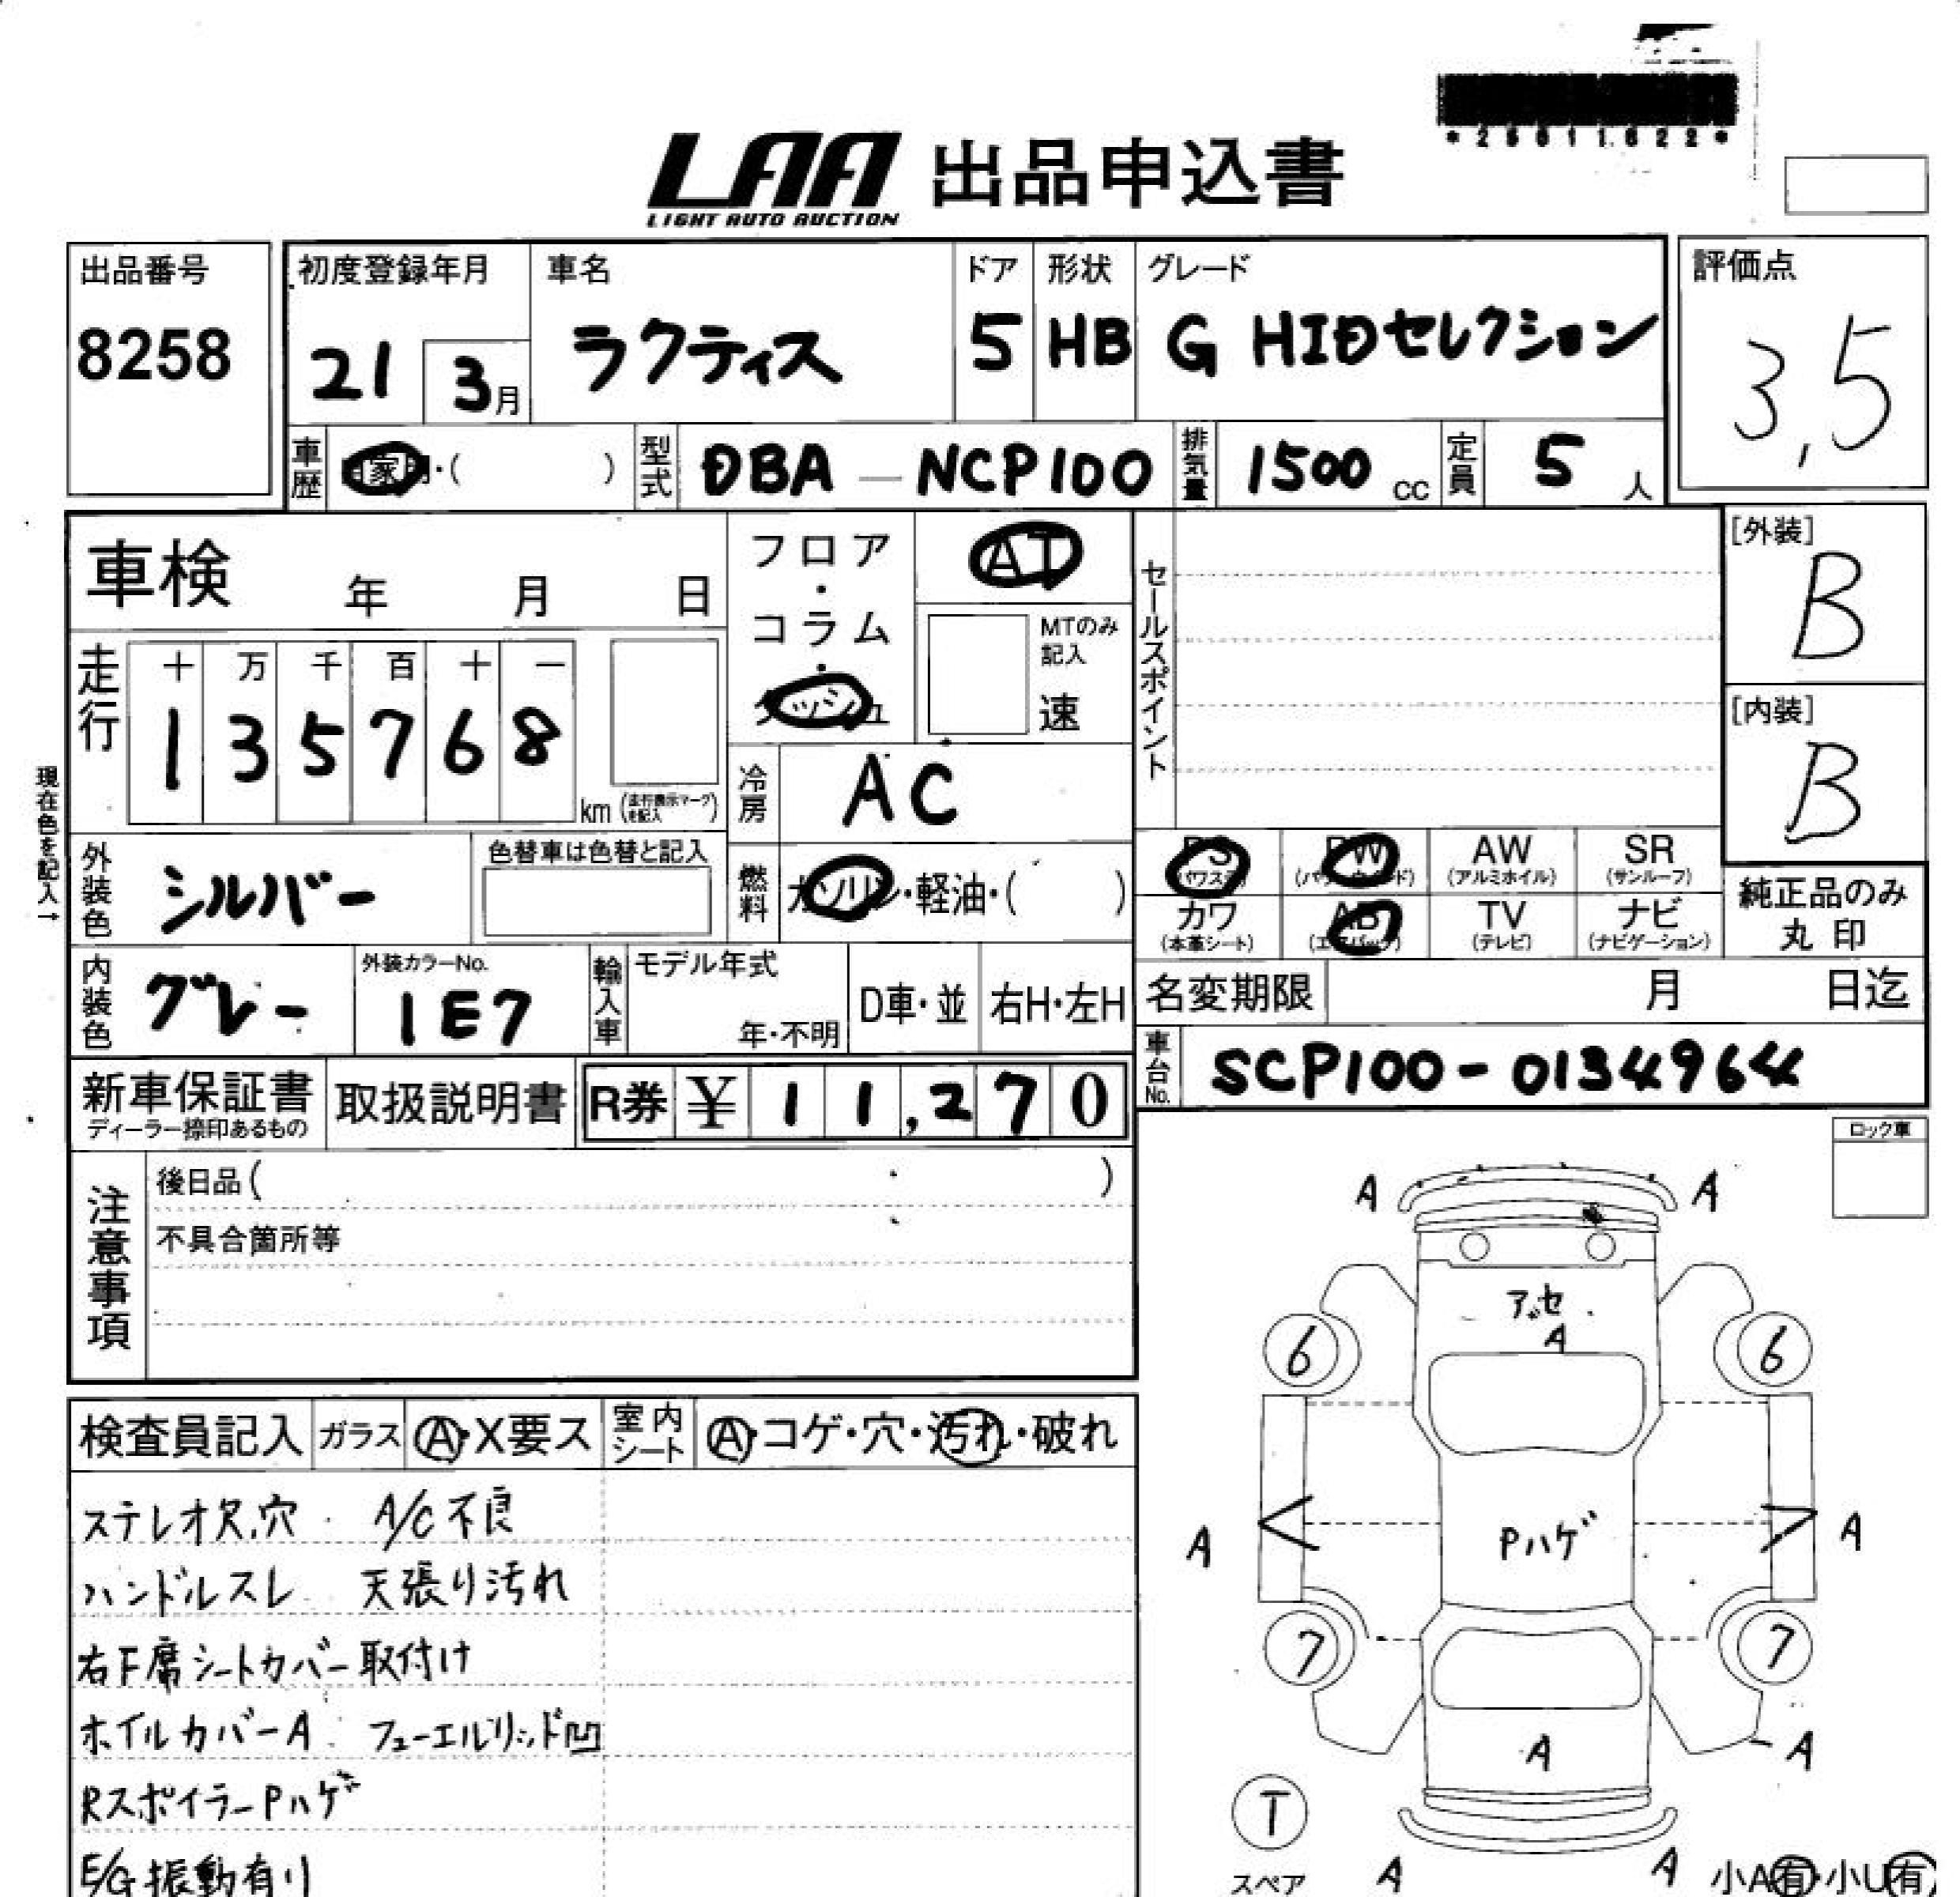 LAA 出品申込書
LIGHT AUTO AUCTION
出品番号
8258
初度登録年月
21 3月
車名
ラクティス
ドア
5
形状
HB
グレード
G HIDセレクション
評価点
3,5
車歴 自家用・( )
型式 DBA-NCP100
排気量 1500 cc
定員 5 人
車検 年 月 日
フロア・コラム・ダッシュ
AT
MTのみ記入
速
セールスポイント
[外装]
B
[内装]
B
走行
十 万 千 百 十 一
1 3 5 7 6 8
km (走行表示マークを記入)
冷房 AC
現在色を記入→
外装色 シルバー
色替車は色替と記入
燃料 ガソリン・軽油・( )
PS (パワステ)
PW (パワーウィンド)
AW (アルミホイル)
SR (サンルーフ)
カワ (本革シート)
AB (エアバック)
TV (テレビ)
ナビ (ナビゲーション)
純正品のみ
丸印
内装色 グレー
外装カラーNo.
1E7
輸入車
モデル年式
年・不明
D車・並
右H・左H
名変期限 月 日迄
車台No. SCP100-0134964
新車保証書
ディーラー捺印あるもの
取扱説明書
R券 ¥ 11,270
ロック車
注意事項
後日品( )
不具合箇所等
検査員記入
ガラス A・X要ス
室内シート A・コゲ・穴・汚れ・破れ
ステレオ欠.穴 A/C不良
ハンドルスレ 天張り汚れ
右F席シートカバー取付け
ホイルカバーA フューエルリッド凹
RスポイラーPハゲ
E/G振動有り
A A
A
6 6
A PハゲA
7 7
A A
T
スペア
A A
小A有・小U有